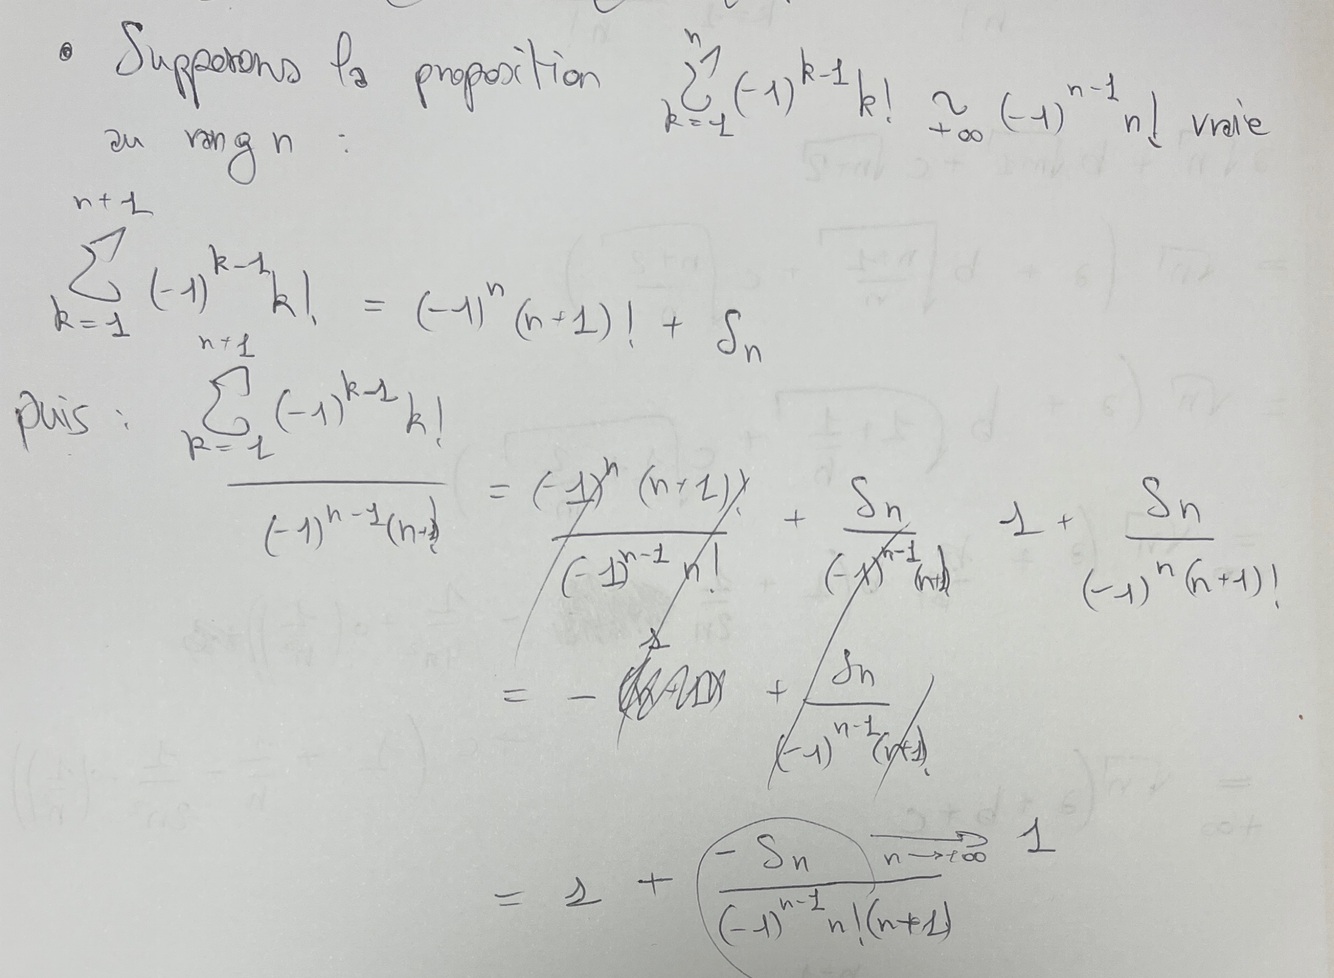 • Supposons la proposition \sum_{k=1}^{n} (-1)^{k-1} k! \underset{+\infty}{\sim} (-1)^{n-1} n! vraie
au rang n :
\sum_{k=1}^{n+1} (-1)^{k-1} k! = (-1)^n (n+1)! + S_n
puis : \frac{\sum_{k=1}^{n+1} (-1)^{k-1} k!}{(-1)^{n-1} (n+1)!} = \frac{(-1)^n (n+1)!}{(-1)^{n-1} n!} + \frac{S_n}{(-1)^{n-1} (n+1)!} 1 + \frac{S_n}{(-1)^n (n+1)!}
= - + \frac{S_n}{(-1)^{n-1} (n+1)!}
= 1 + \frac{- S_n}{(-1)^{n-1} n! (n+1)} \xrightarrow[n \to +\infty]{} 1